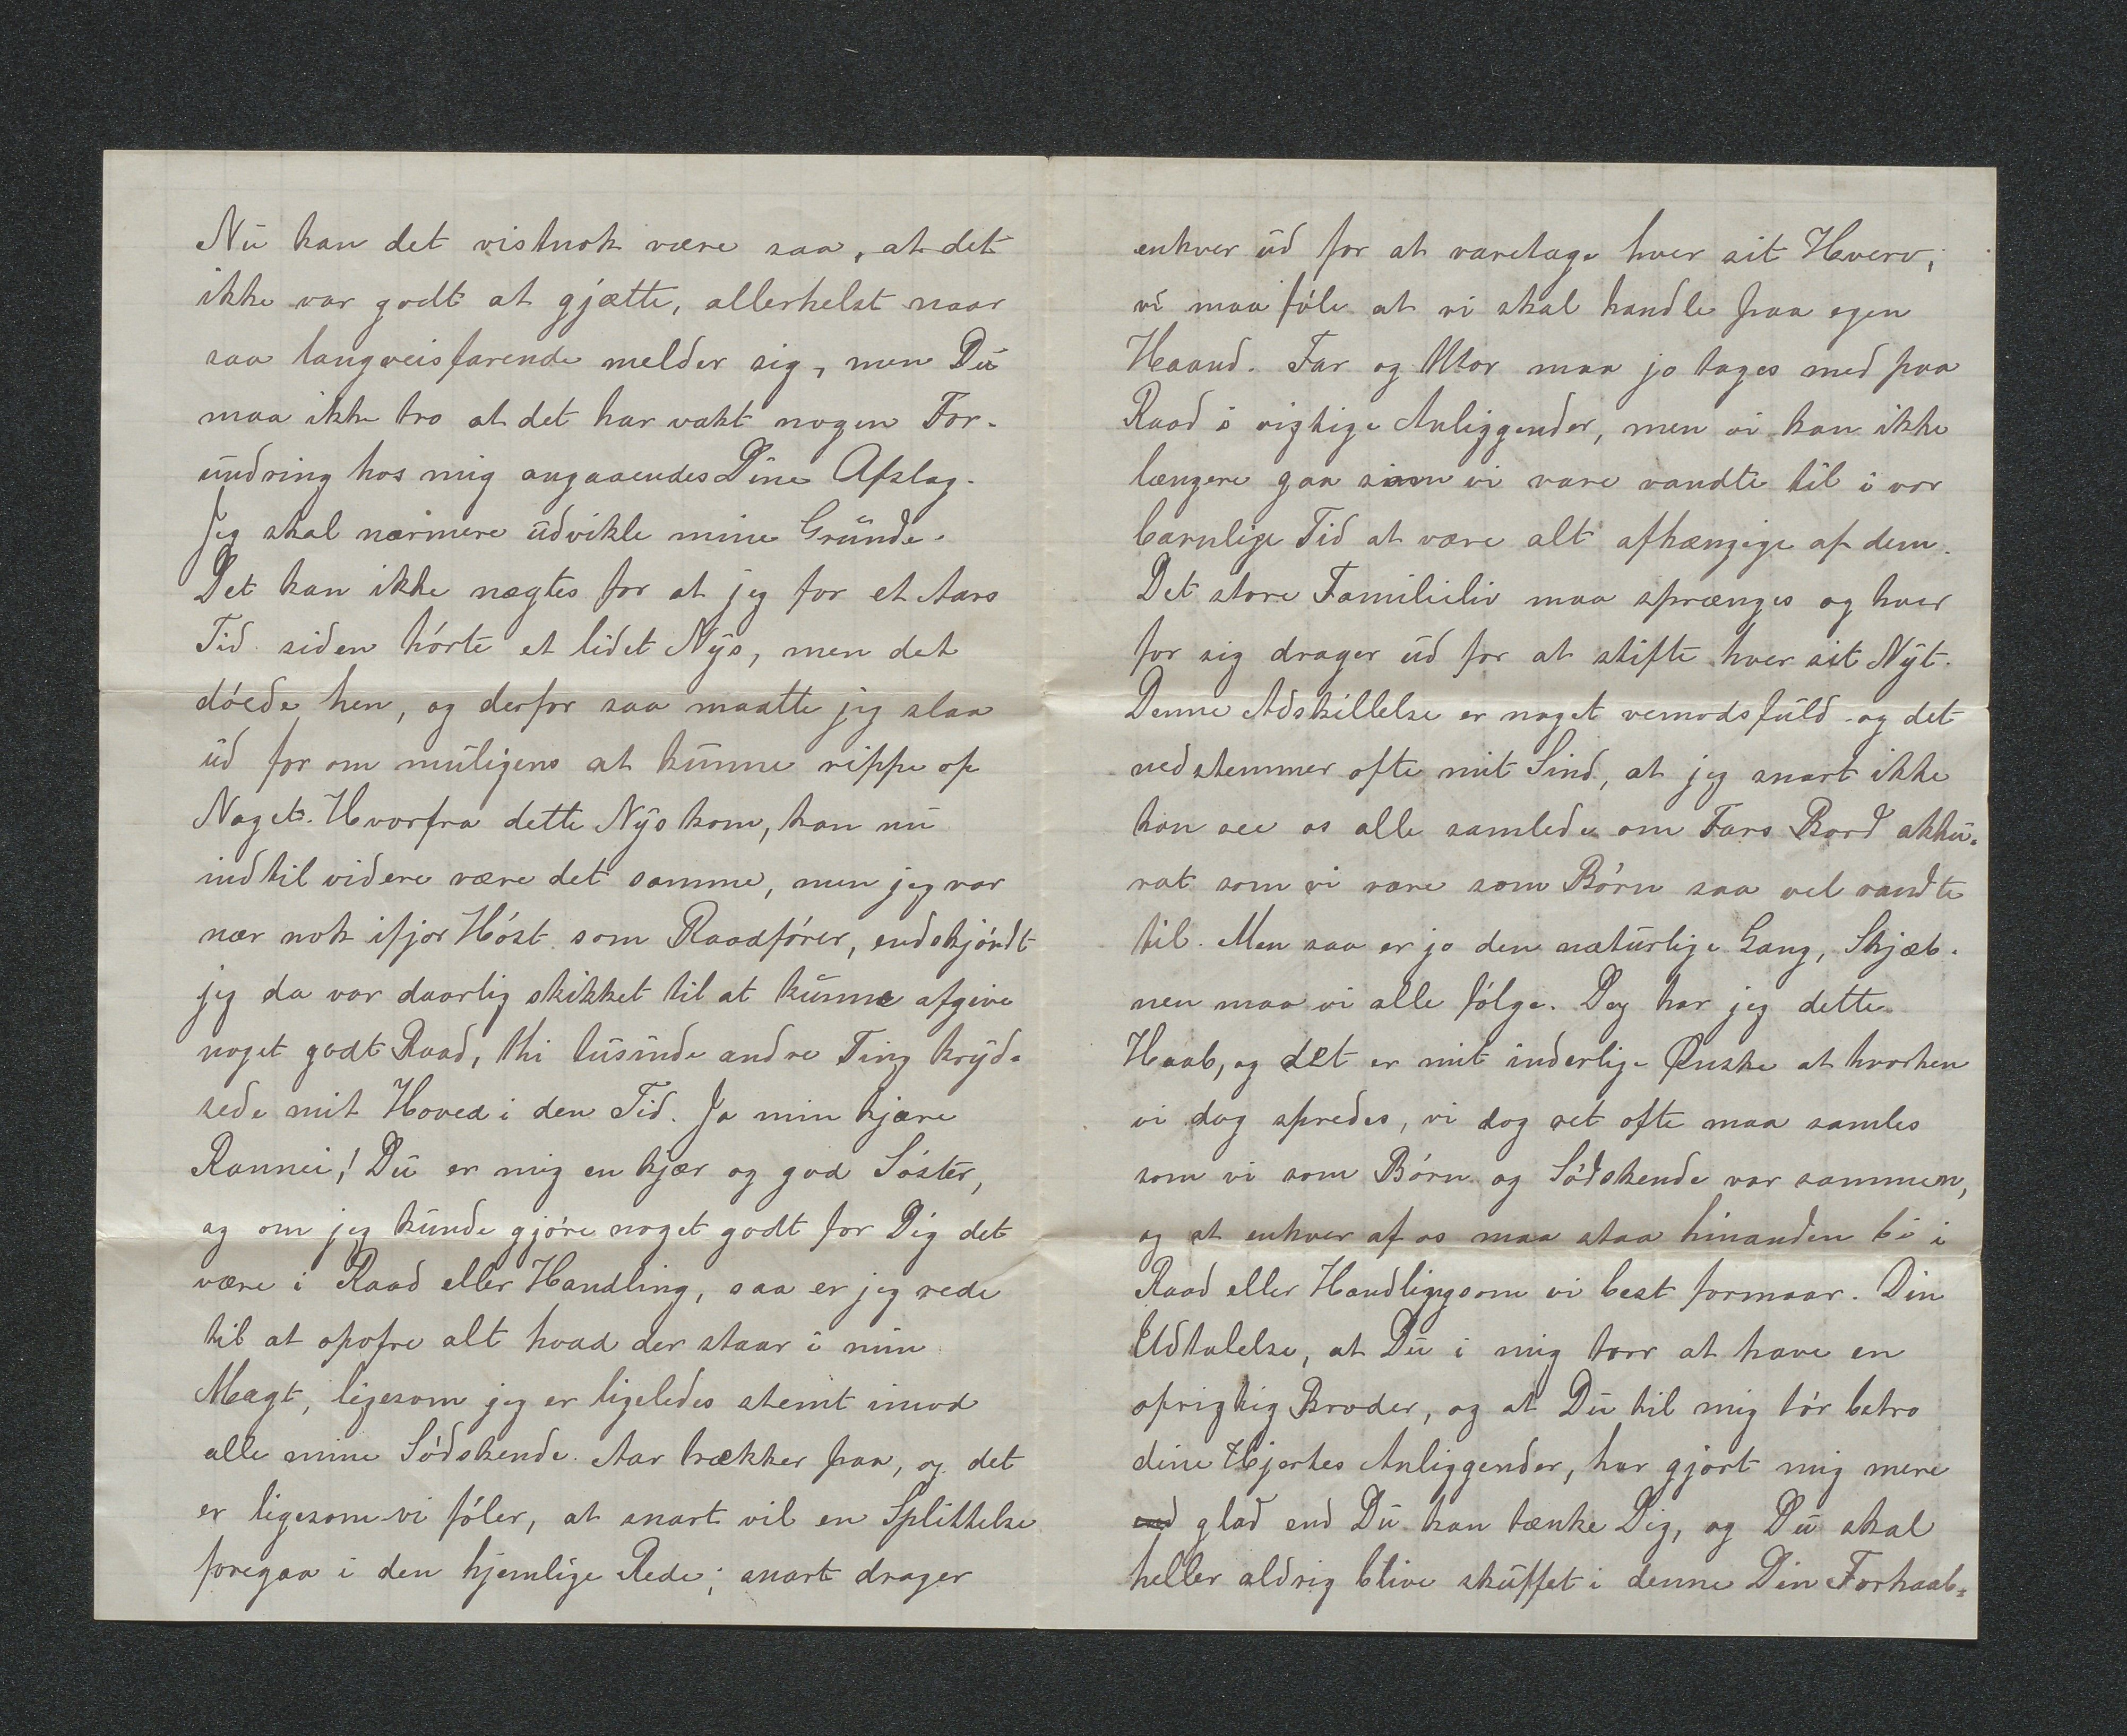 Nu kan det vistnok være saa, at det
ikke var godt at gjætte, allerhelst naar
saa langveisfarende melder sig, men Du
maa ikke tro at det har vakt nogen For-
undring hos mig angaaendes Dine Afslag.
Jeg skal nærmere udvikle mine Grunde.
Det kan ikke nægtes for at jeg for et Aars
Tid siden hórte et lidet Nys, men det
dóede hen, og derfor saa maatte jeg slaa
ud for om muligens at kunne rippe op
Noget. Hvorfra dette Nys kom, kan nu
indtil videre være det samme, men jeg var
nær nok ifjor Hóst som Raadfórer, endskjóndt
jeg da var daarlig skikket til at kunne afgive
noget godt Raad, thi tusinde andre Ting kryd-
sede mit Hoved i den Tid. Ja min kjære
Rannei! Du er mig en kjær og god Sóster,
og om jeg kunde gjóre noget godt for Dig det
være i Raad eller Handling, saa er jeg rede
til at opofre alt hvad der staar i min
Magt, ligesom jeg er ligeledes stemt imod
alle mine Sódskende. Aar trækker paa, og det
er ligesom vi fóler, at snart vil en Splittelse
foregaa i den hjemlige Rede; snart drager
enhver ud for at varetage hver sit Hverv,
vi maa fóle at vi skal handle paa egen
Haand. Far og Mor maa jo tages med paa
Raad i vigtige Anliggender, men vi kan ikke
længere gaa som vi vare vandte til i vor
barnlige Tid at være alt afhængige af dem.
Det store Familieliv maa sprænges og hver
for sig drager ud for at stifte hver sit Nyt.
Denne Adskillelse er noget vemodsfuld og det
nedstemmer ofte mit Sind, at jeg snart ikke
kan see os alle samlede om Fars Bord akku-
rat som vi vare som Bórn saa vel vandte
til. Men saa er jo den naturlige Gang, Skjæb-
nen maa vi alle fólge. Dog har jeg dette
Haab, og det er mit inderlige Ønske at hvorhen
vi dog spredes, vi dog ret ofte maa samles
som vi som Bórn og Sódskende var sammen,
og at enhver af os maa staa hinanden bi i
Raad eller Handling som vi best formaar. Din
Udtalelse, at Du i mig torr at have en
oprigtig Broder, og at Du til mig tór betro
dine Hjertes Anliggender, har gjort mig mere
end glad end Du kan tænke Dig, og Du skal
heller aldrig blive skuffet i denne Din Forhaab-